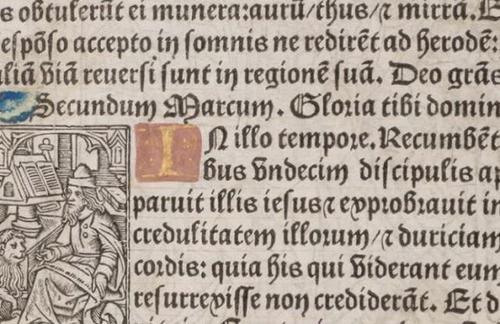 s obtulerūt ei munera: aurū/ thus/ ⁊ mirrā. E
espōso accepto in somnis ne redirēt ad herodē:
aliā viā reuersi sunt in regionē suā. Deo grāt
Secundum Marcum. Gloria tibi domin
IN illo tempore. Recumbēt
bus vndecim discipulis ap
paruit illis iesus ⁊ exprobrauit in
credulitatem illorum/ ⁊ duriciam
cordis: quia his qui viderant eum
resurrexisse non crediderāt. Et d